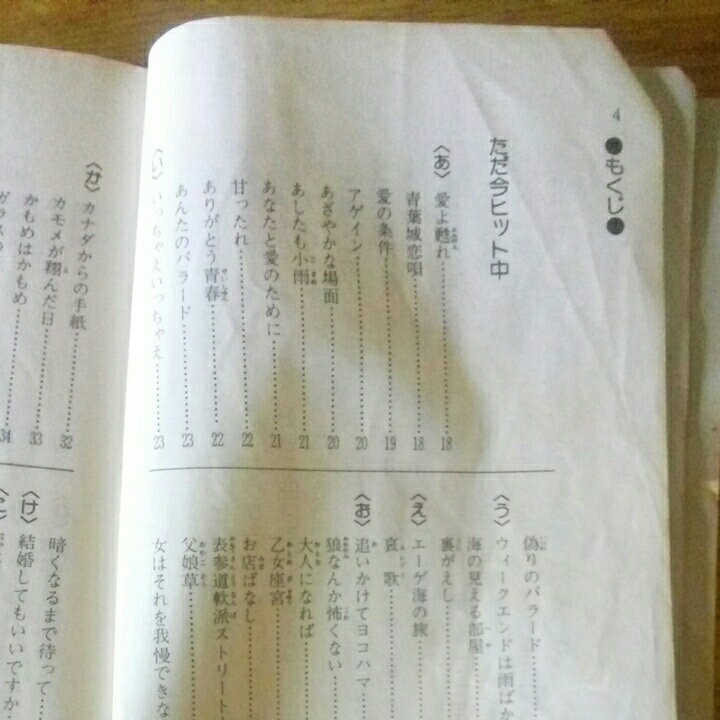 4
●もくじ●
ただ今ヒット中
〈あ〉愛よ甦れ……18
青葉城恋唄……18
愛の条件……19
アゲイン……20
あざやかな場面……20
あしたも小雨……21
あなたと愛のために……21
甘ったれ……22
ありがとう青春……22
あんたのバラード……23
〈い〉いっちゃえいっちゃえ……23
偽りのバラード……
〈う〉ウィークエンドは雨ばか
海の見える部屋……
裏がえし……
〈え〉エーゲ海の旅……
哀歌……
〈お〉追いかけてヨコハマ……
狼なんか怖くない……
大人になれば……
乙女座宮……
お店ばなし……
表参道軟派ストリート……
父娘草……
女はそれを我慢できな
〈か〉カナダからの手紙……32
カモメが翔んだ日……33
かもめはかもめ……34
ガラスの
暗くなるまで待って……
〈け〉結婚してもいいですか
〈こ〉